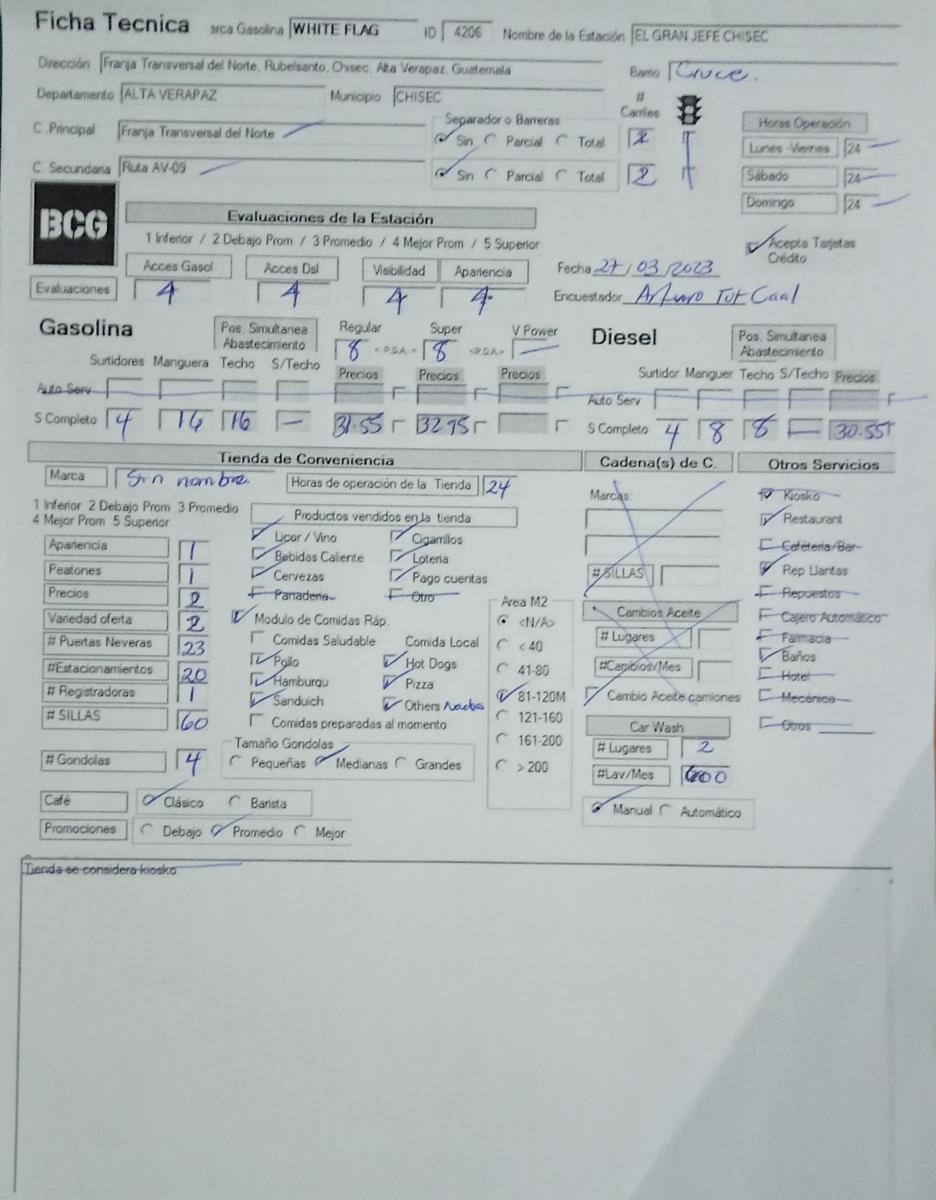 Ficha Tecnica arca Gasolina WHITE FLAG ID 4206 Nombre de la Estación EL GRAN JEFE CHISEC
Dirección Franja Transversal del Norte, Rubelsanto, Chisec, Alta Verapaz, Guatemala Barrio Cruce.
Departamento ALTA VERAPAZ Municipio CHISEC # Carriles
C. Principal Franja Transversal del Norte Separador o Barreras Sin Parcial Total 2
Horas Operación
Lunes -Viernes 24
C. Secundaria Ruta AV-09 Sin Parcial Total 2
Sábado 24
Domingo 24
BCG
Evaluaciones de la Estación
1 Inferior / 2 Debajo Prom / 3 Promedio / 4 Mejor Prom / 5 Superior
Acepta Tarjetas Crédito
Acces Gasol Acces Dsl Visibilidad Apariencia Fecha 27/03/2023
Evaluaciones 4 4 4 4 Encuestador Arturo Tut Caal
Gasolina Pos. Simultanea Abastecimiento Regular Super V Power Diesel Pos. Simultanea Abastecimiento
8 <P.S.A.> 8 <P.S.A.> —
Surtidores Manguera Techo S/Techo Precios Precios Precios Surtidor Manguer Techo S/Techo Precios
Auto Serv Auto Serv
S Completo 4 16 16 — 31.55 32.95 S Completo 4 8 8 — 30.55
Tienda de Conveniencia Cadena(s) de C. Otros Servicios
Marca Sin nombre Horas de operación de la Tienda 24
1 Inferior 2 Debajo Prom 3 Promedio
4 Mejor Prom 5 Superior
Apariencia 1
Peatones 1
Precios 2
Variedad oferta 2
# Puertas Neveras 23
#Estacionamientos 20
# Registradoras 1
# SILLAS 60
# Gondolas 4
Productos vendidos en la tienda
Licor / Vino Cigarrillos
Bebidas Caliente Loteria
Cervezas Pago cuentas
Panaderia Otro
Modulo de Comidas Ráp.
Comidas Saludable Comida Local
Pollo Hot Dogs
Hamburgu Pizza
Sanduich Others
Comidas preparadas al momento
Tamaño Gondolas
Pequeñas Medianas Grandes
Area M2
<N/A>
< 40
41-80
81-120M
121-160
161-200
> 200
Marcas:
# SILLAS
Cambios Aceite
# Lugares
#Cambios/Mes
Cambio Aceite camiones
Car Wash
# Lugares 2
#Lav/Mes 600
Manual Automático
Kiosko
Restaurant
Cafeteria/Bar
Rep Llantas
Repuestos
Cajero Automático
Farmacia
Baños
Hotel
Mecánica
Otros
Café Clásico Barista
Promociones Debajo Promedio Mejor
Tienda se considera kiosko